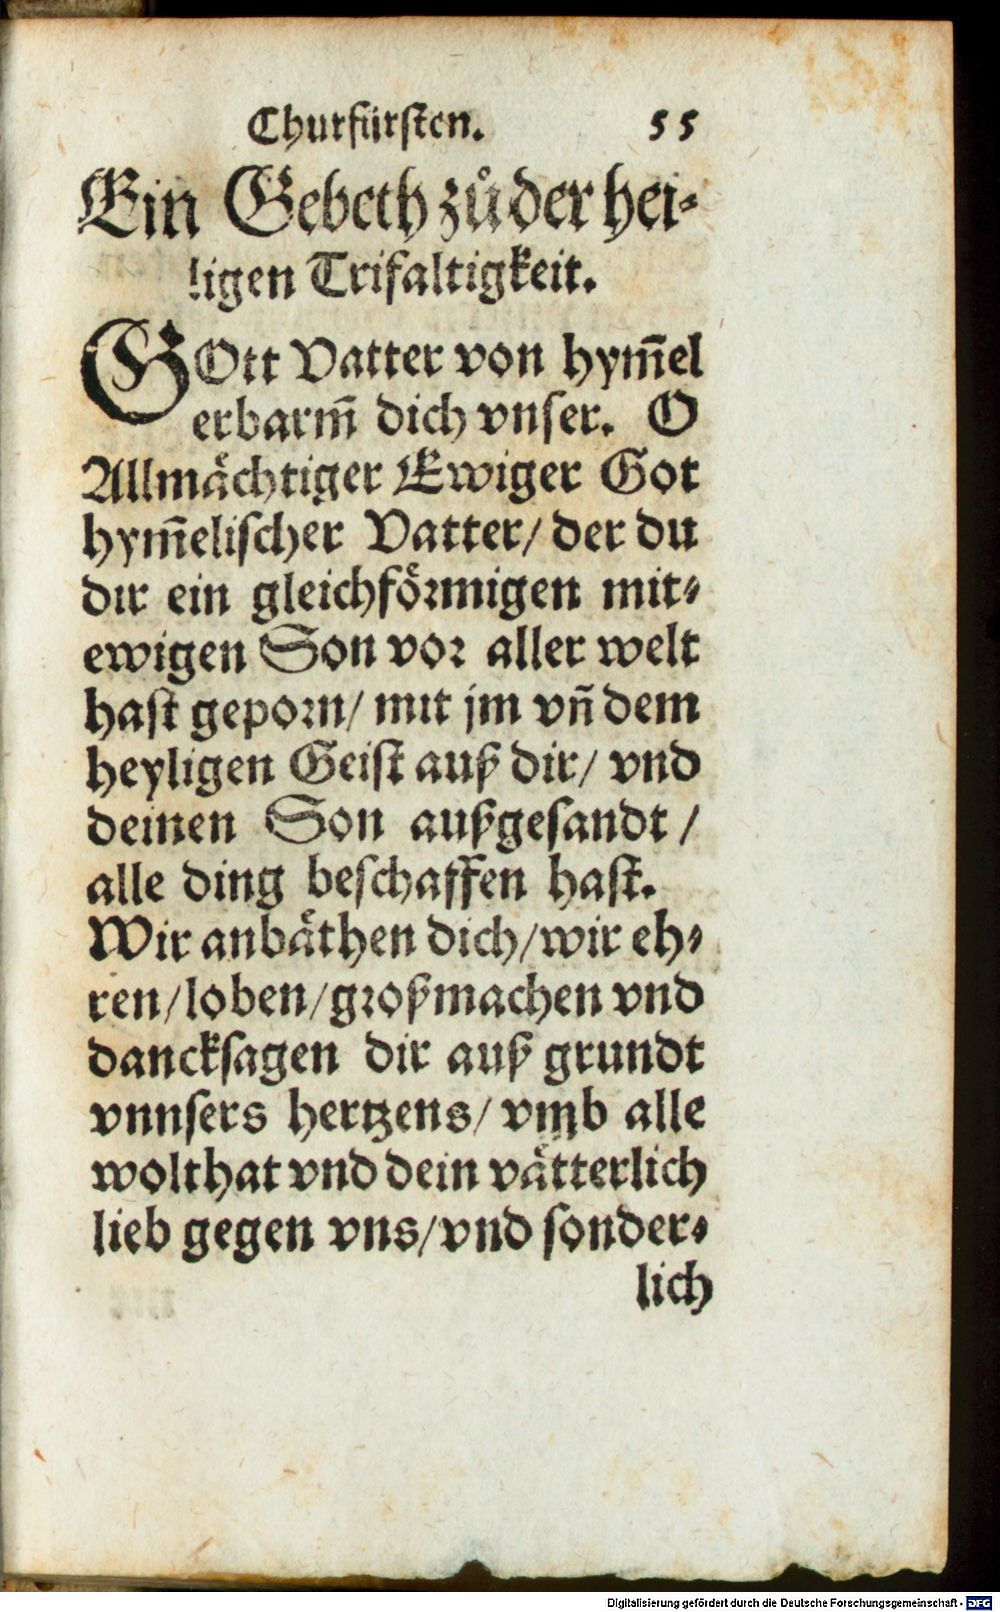 Churfürsten. 55
Ein Gebeth zů der hei-
ligen Trifaltigkeit.
GOtt Vatter von hym̃el
erbarm̃ dich vnser. O
Allmächtiger Ewiger Got
hym̃elischer Vatter/ der du
dir ein gleichförmigen mit-
ewigen Son vor aller welt
hast geporn/ mit jm vñ dem
heyligen Geist auß dir/ vnd
deinen Son außgesandt /
alle ding beschaffen hast.
Wir anbäthen dich/wir eh-
ren/loben/großmachen vnd
dancksagen dir auß grundt
vnnsers hertzens/ vmb alle
wolthat vnd dein vätterlich
lieb gegen vns/vnd sonder-
lich
Digitalisierung gefördert durch die Deutsche Forschungsgemeinschaft - DFG